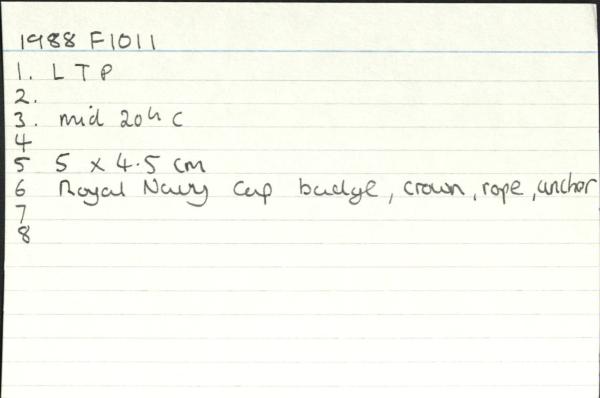 1988 F1011
1. L T P
2.
3. mid 20th C
4
5 5 x 4.5 cm
6 Royal Navy Cap badge, crown, rope, anchor
7
8